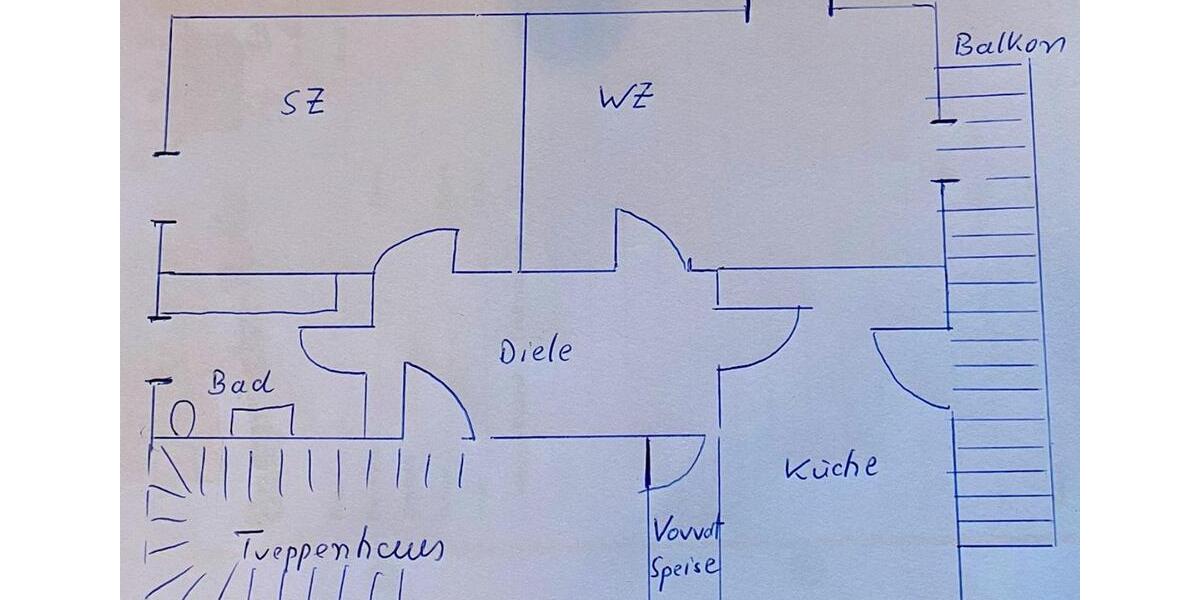 Balkon
SZ
WZ
Diele
Bad
Küche
Vorrat
Speise
Treppenhaus